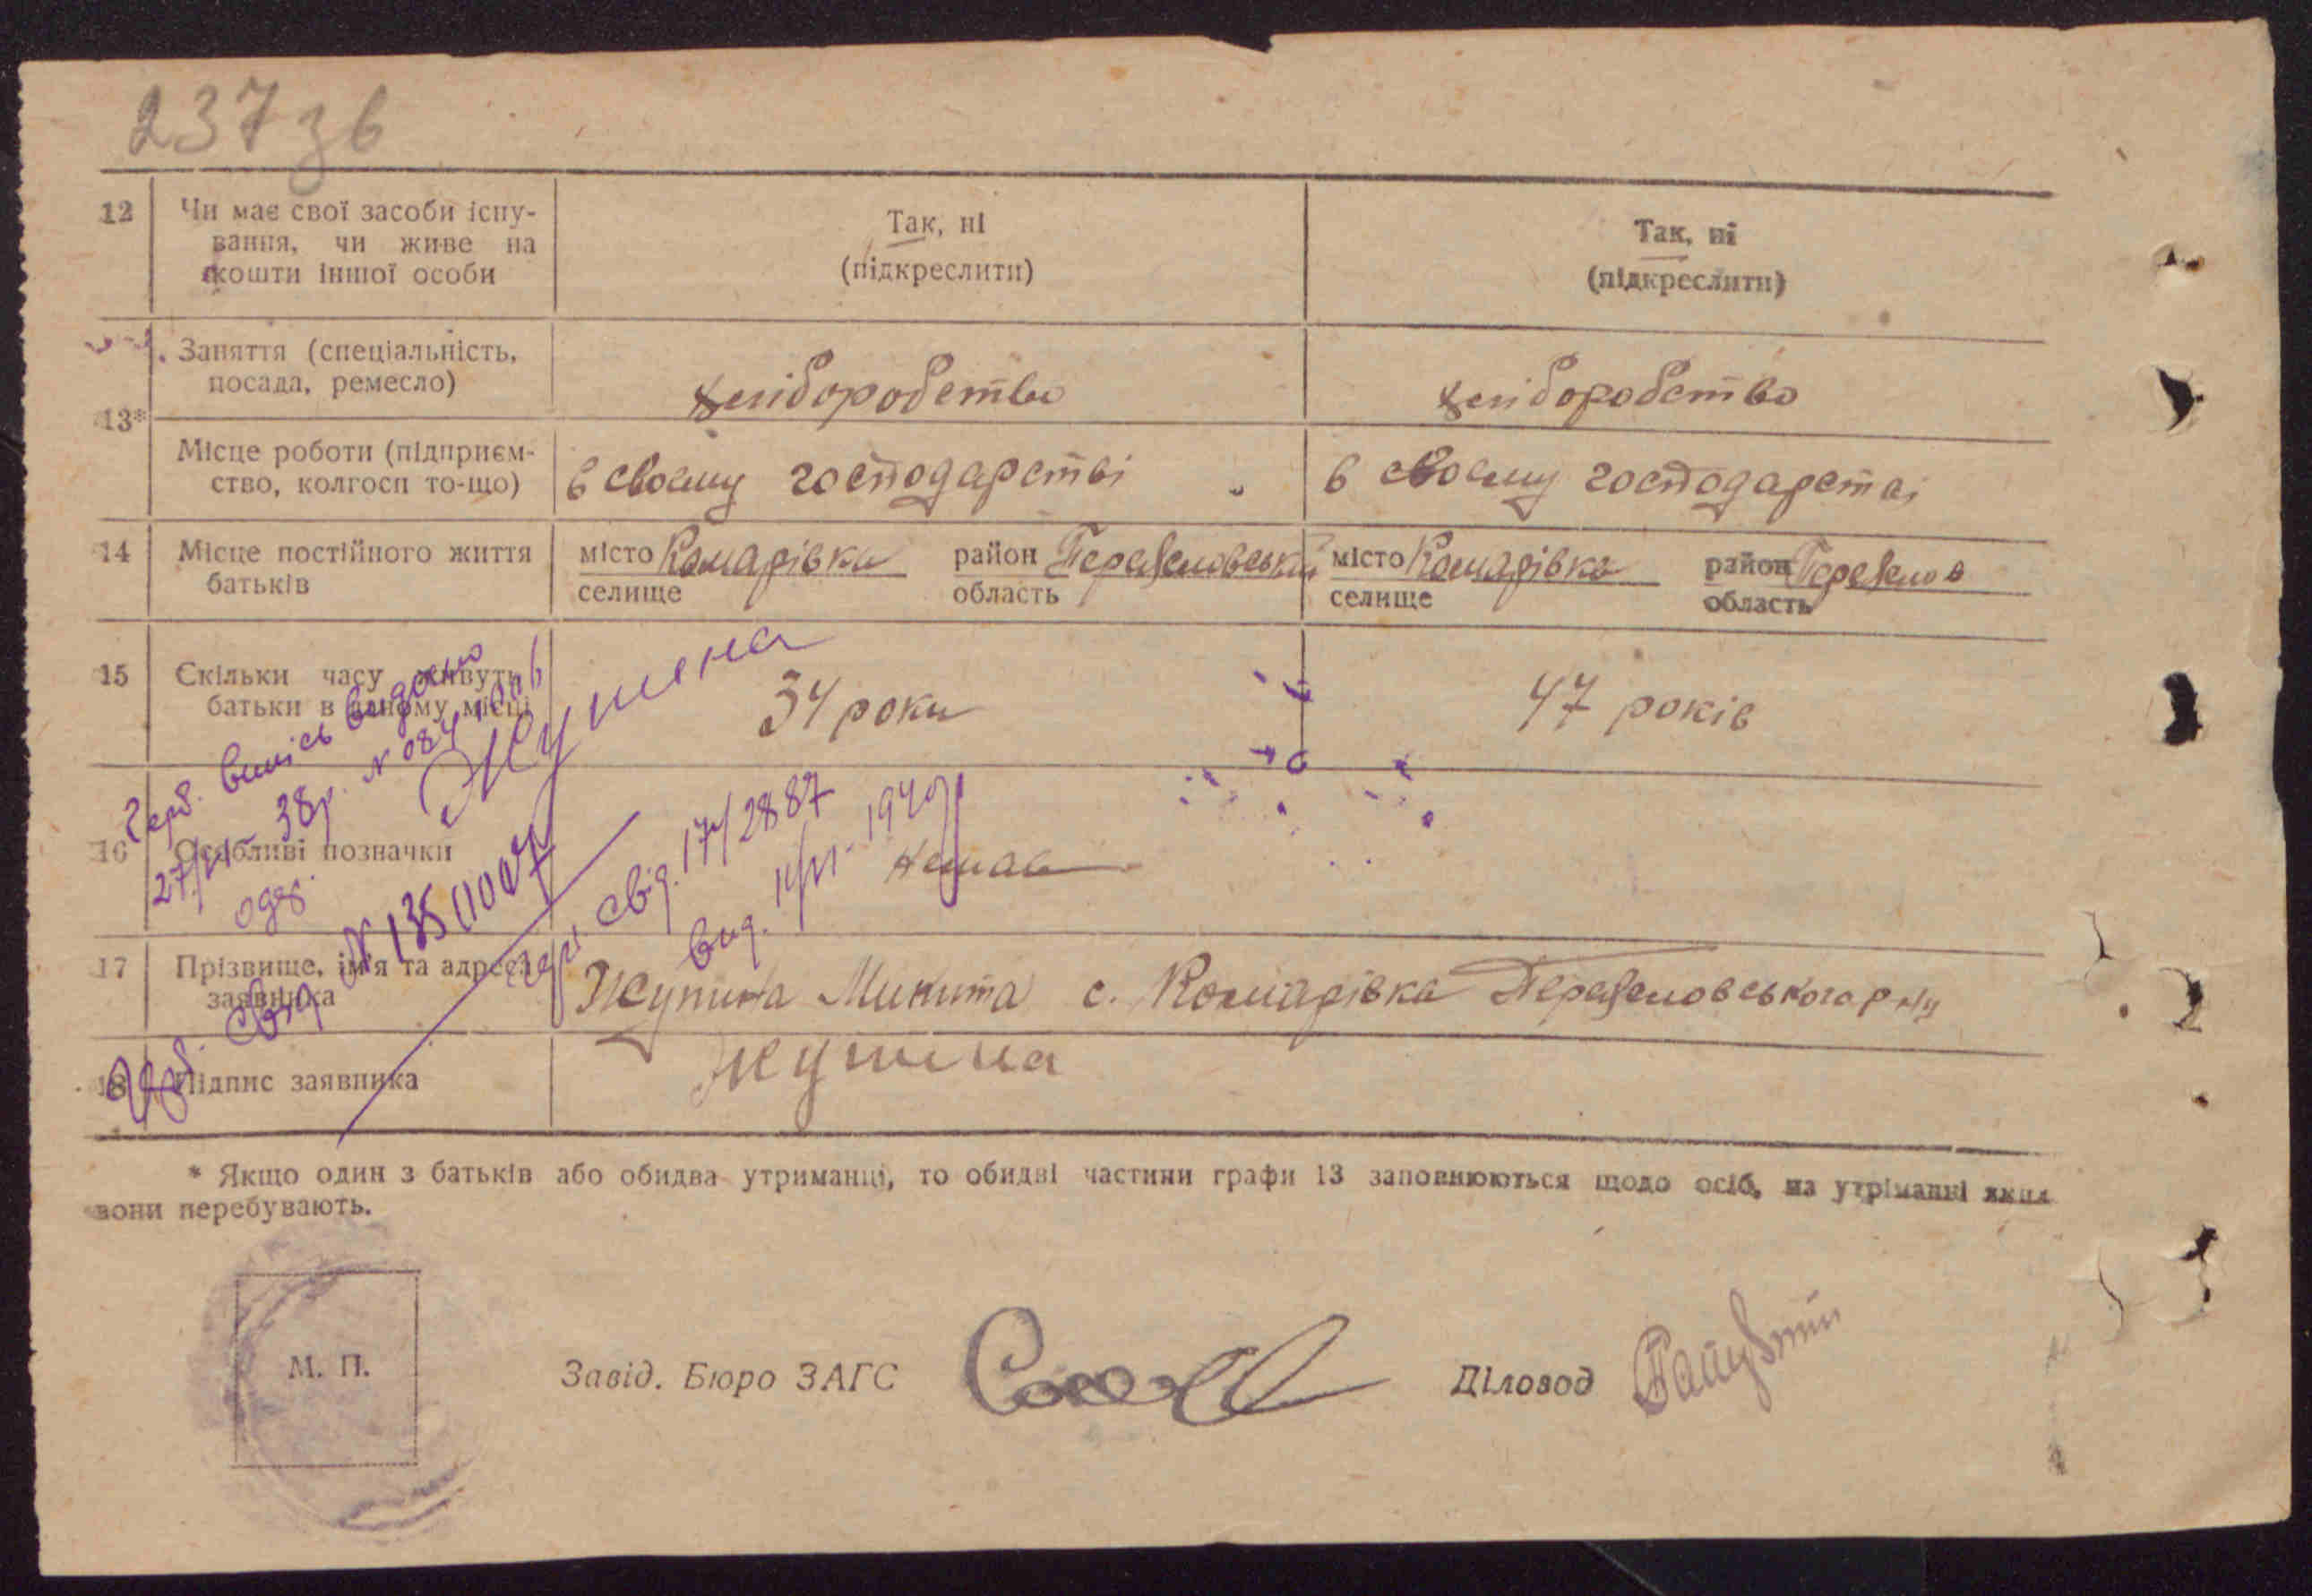 237 зв
12 Чи має свої засоби існу-
вання, чи живе на
кошти іншої особи
Так, ні
(підкреслити)
Так, ні
(підкреслити)
13*
Заняття (спеціальність,
посада, ремесло)
хліборобство
хліборобство
Місце роботи (підприєм-
ство, колгосп то-що)
в своему господарстві
в своему господарстві
14 Місце постійного життя
батьків
місто Комарівка район
селище область
місто Комарівка район
селище область
15 Скільки часу живуть
батьки в даному місці
34 роки
47 років
16 Особливі позначки
немає
Герб. випись видано
27/VI - 38р. №
одер.
Жушна
Герб. свід. 17/2887
вид. 1940р
свід № 135
17 Прізвище, ім'я та адреса
заявника
Микита с. Комарівка
18 Підпис заявника
* Якщо один з батьків або обидва утриманці, то обидві частини графи 13 заповнюються щодо осіб, на утріманні яких
вони перебувають.
М. П.
Завід. Бюро ЗАГС
Діловод